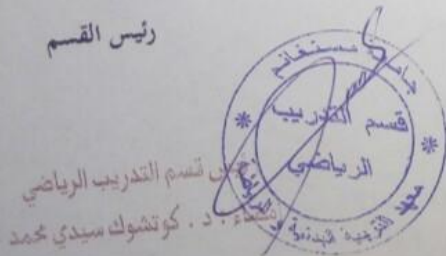 رئيس القسم
جامعة مستغانم
قسم التدريب
الرياضي
معهد التربية البدنية و الرياضية
قسم التدريب الرياضي
إمضاء : د . كوتشوك سيدي محمد